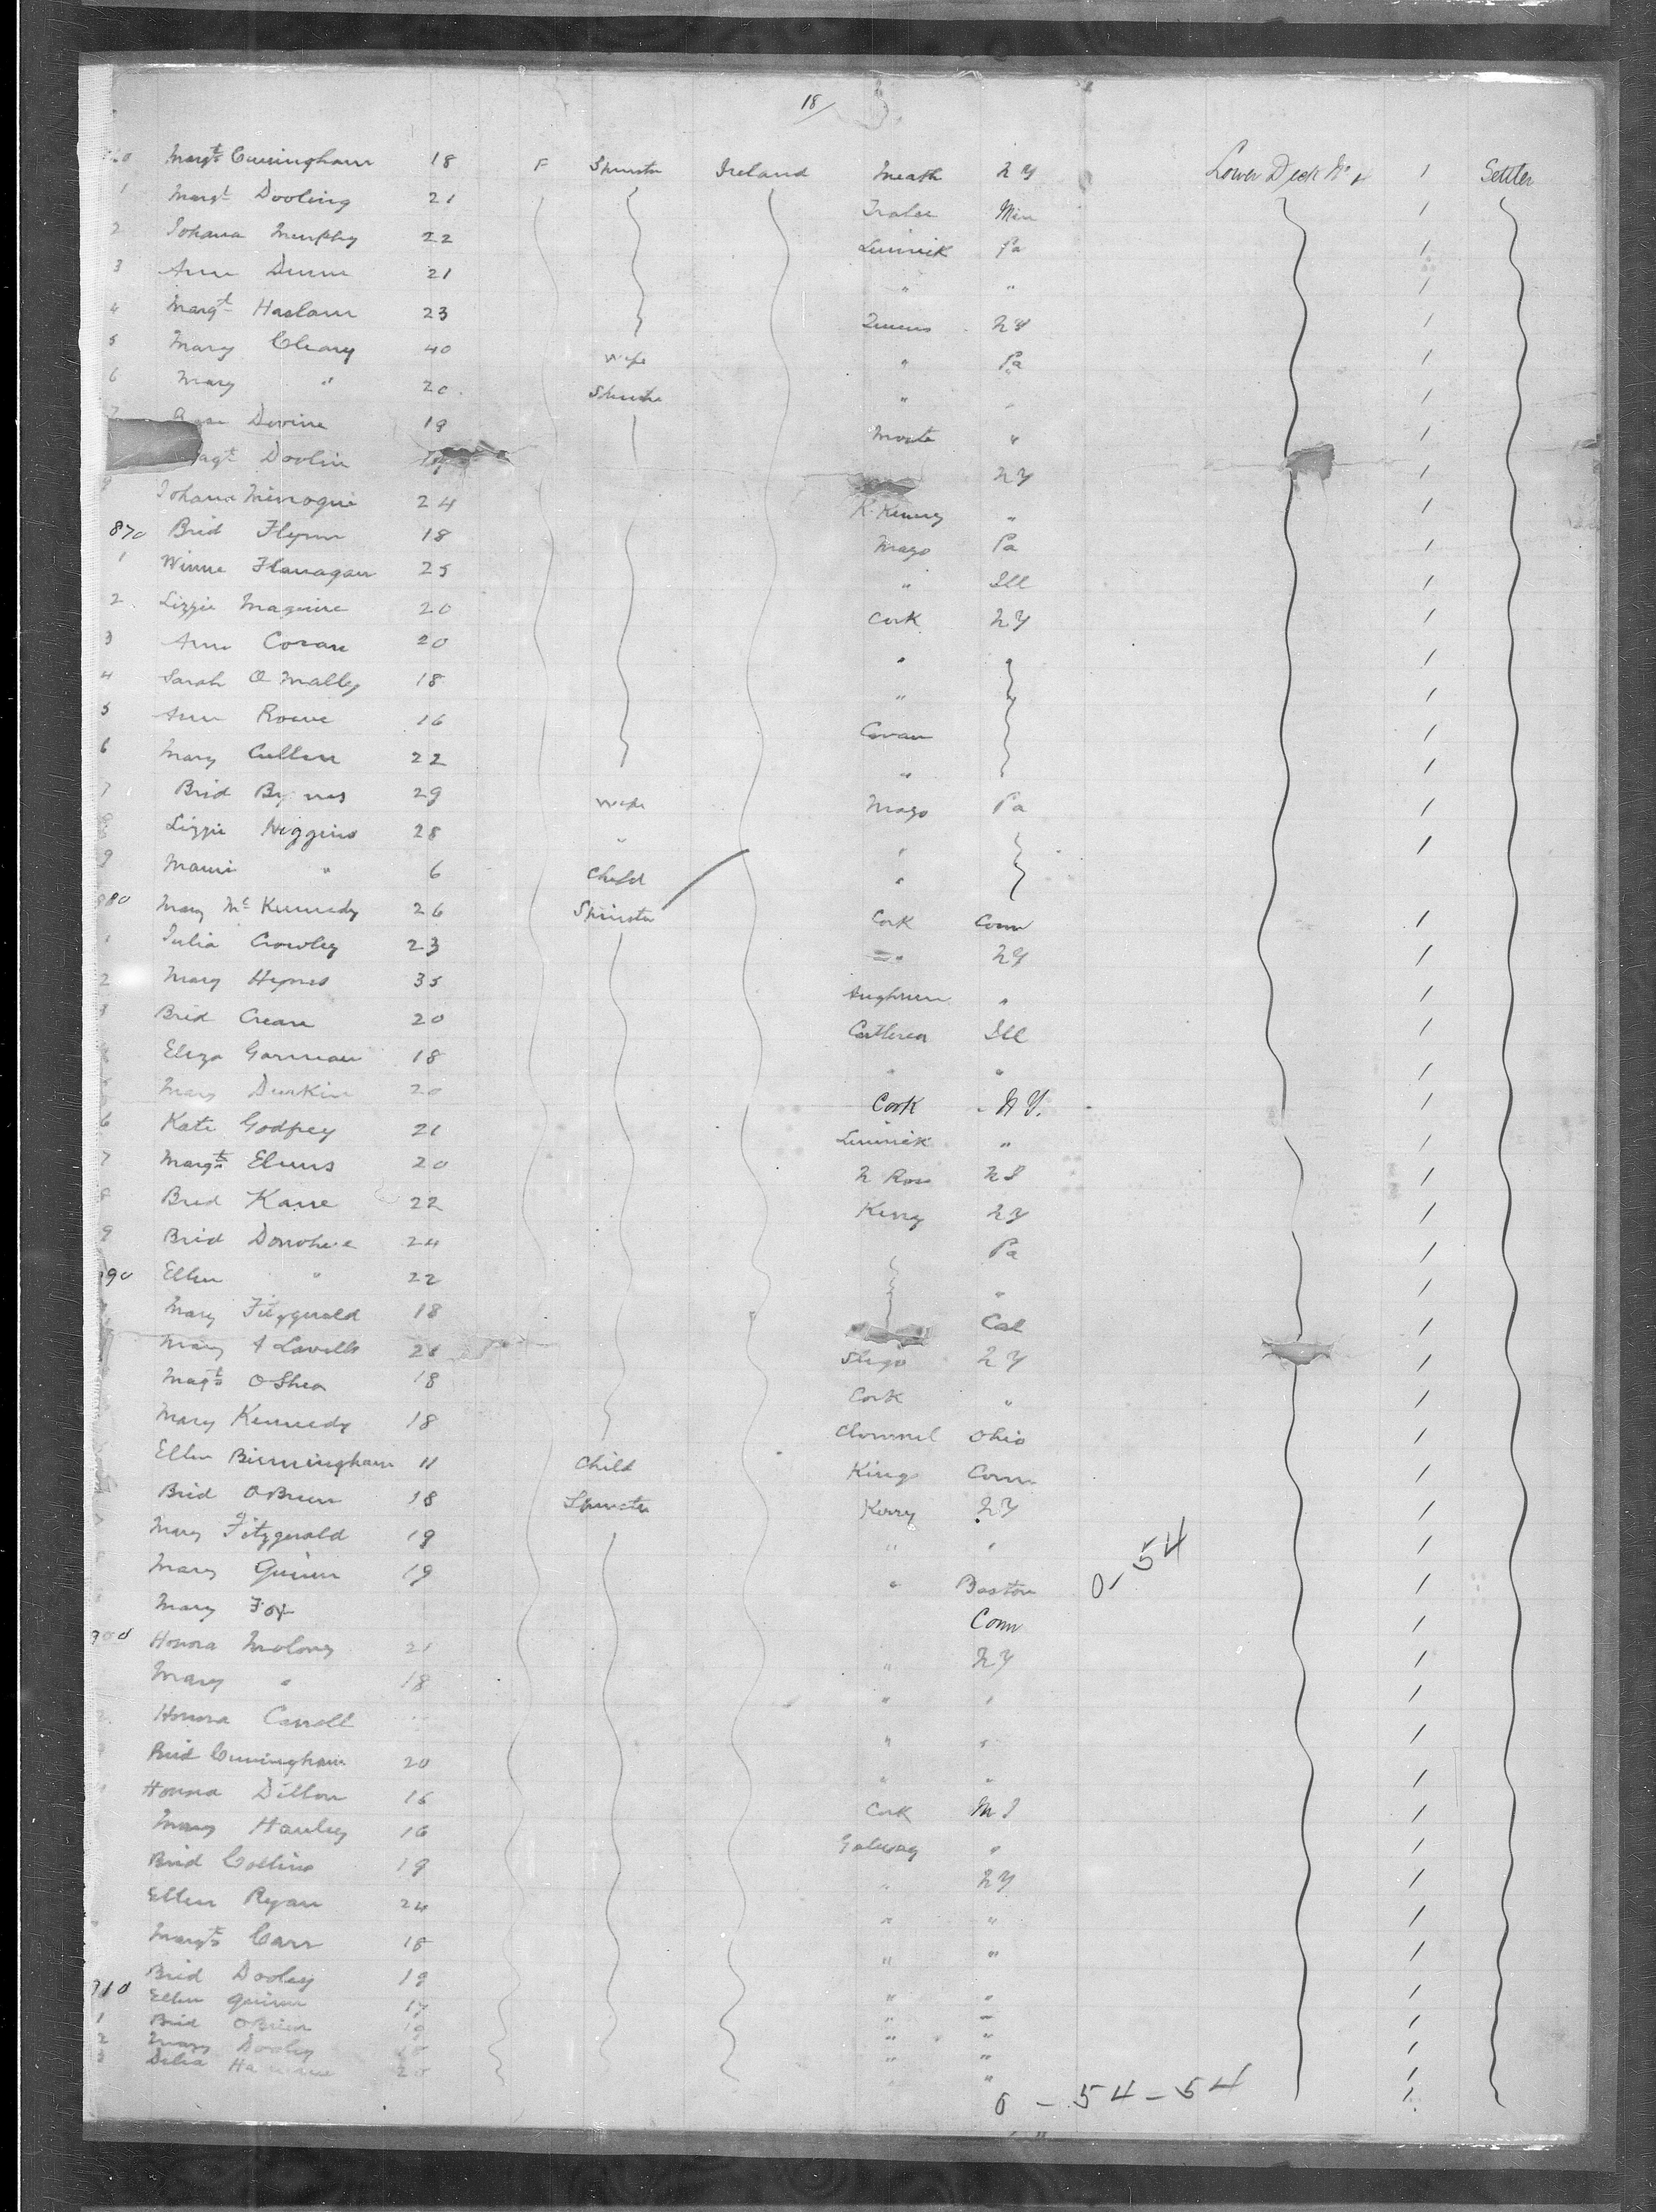 18/
Margt Cunningham 18 F Spinster Ireland Meath N Y Lower Deck No 1 / Settler
1 Margt Dooling 21 Tralee Min /
2 Johana Murphy 22 Limrick Pa /
3 Ann Dunn 21 " " /
4 Margt Haslam 23 Queens N Y /
5 Mary Cleary 40 Wife " Pa /
6 Mary " 20 Spinster " " /
Devine 19 "  /
Doolin N Y /
9 Johana Minogue 24 K. Kenny " /
870 Brid Flynn 18 Mayo Pa /
1 Winne Flanagan 25 " Ill /
2 Lizzie Maguire 20 Cork N Y /
3 Ann Coran 20 " " /
4 Sarah O Malley 18 " " /
5 Ann Rowe 16 Cavan /
6 Mary Cullen 22 " /
7 Brid Byrnes 29 Wife Mayo Pa /
Lizzie Higgins 28 " " /
9 Mami " 6 Child "
880 Mary Mc Kennedy 26 Spinster Cork Conn /
1 Julia Crowley 23 " N Y /
2 Mary Hynes 35 Aughrim " /
3 Brid Creane 20 Castlerea Ill /
Eliza Gannan 18 " " /
Mary Durkin 20 Cork N Y. /
6 Kate Godfrey 21 Limrick " /
7 Margt Elmes 20 N Ross N J /
8 Brid Kane 22 Kerry N Y /
9 Brid Donohue 24 Pa /
890 Ellen " 22 " /
Mary Fitzgerald 18 Cal /
Mary A Lavelle Sligo N Y /
Magt O Shea 18 Cork " /
Mary Kennedy 18 Clonmel Ohio /
Ellen Birmingham 11 Child Kings Conn /
Brid O Brien 18 Spinster Kerry N Y /
Mary Fitzgerald 19 " " /
Mary Quinn 19 " Boston 0-54 /
Mary Fox Conn /
900 Honora Molony 21 " N Y /
Mary " 18 " " /
2 Honora Carroll " " /
Brid Cunningham 20 " " /
Honora Dillon 16 Cork /
Mary Hanley 16 Galway " /
Brid Collins 19 " N Y /
Ellen Ryan 24 " " /
Margt Carr 18 " " /
Brid Dooley 19 " " /
910 Ellen Quinn 17 " " /
1 Brid O Brien 19 " " /
2 Mary Dooley " " /
3 Delia 20 " /
0 - 54 - 54